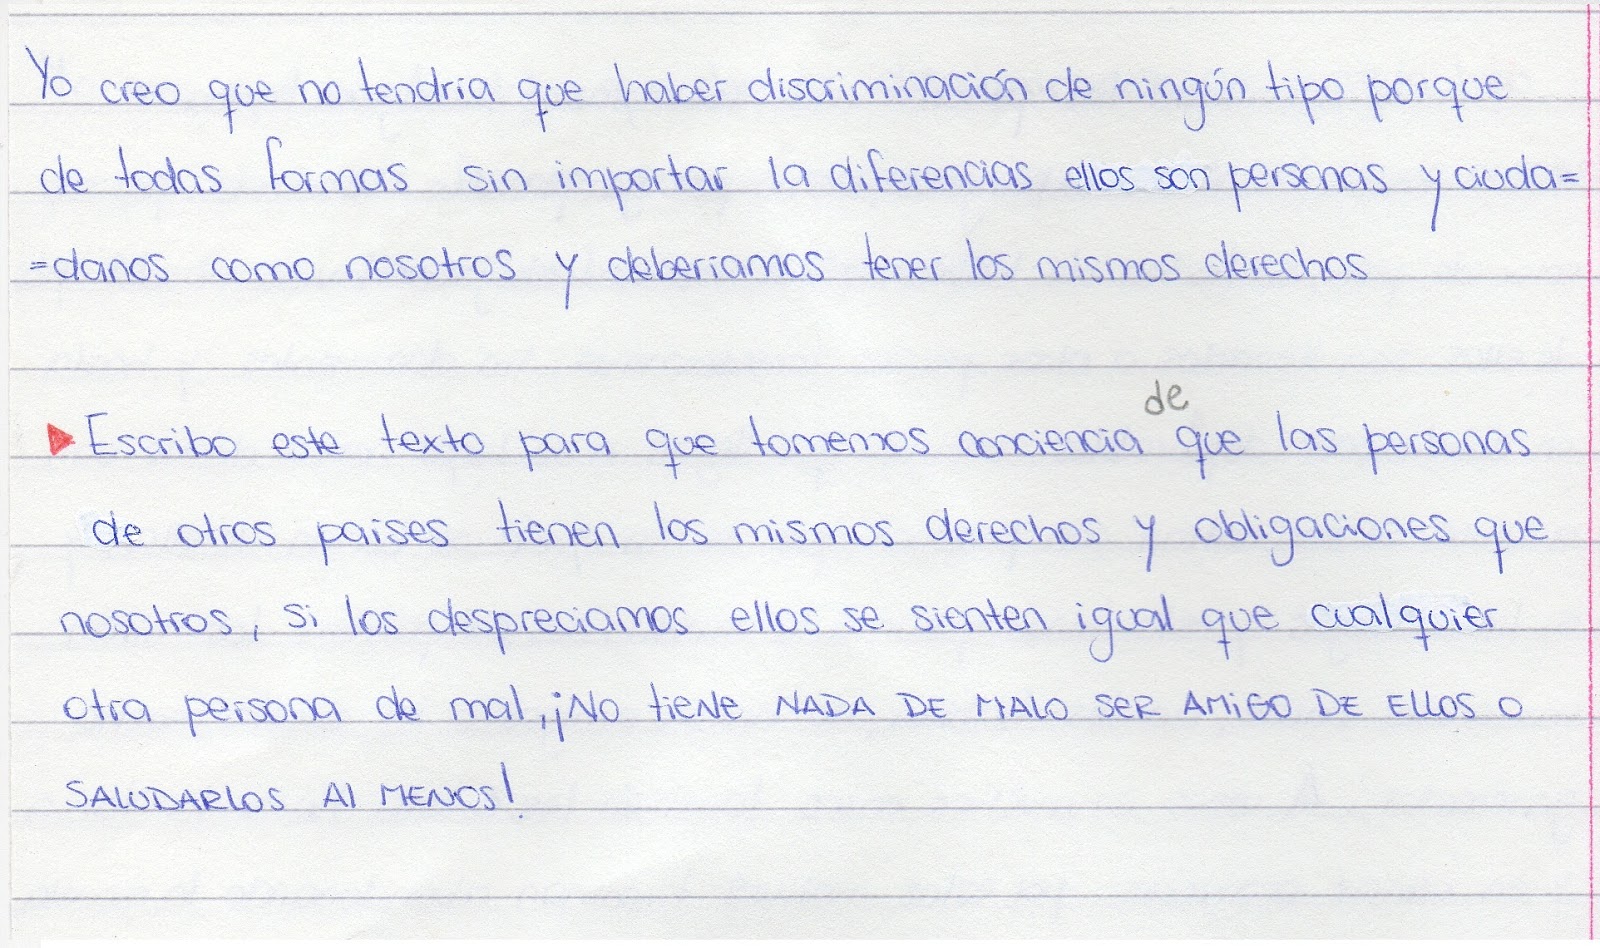 Yo creo que no tendria que haber discriminación de ningún tipo porque
de todas formas sin importar la diferencias ellos son personas y ciuda=
=danos como nosotros y deberiamos tener los mismos derechos
de
▶ Escribo este texto para que tomemos conciencia que las personas
de otros paises tienen los mismos derechos y obligaciones que
nosotros, si los despreciamos ellos se sienten igual que cualquier
otra persona de mal, ¡No tieNe NADA DE MALO SER AMiGO DE EllOS O
SALUDARLOS Al MENOS!